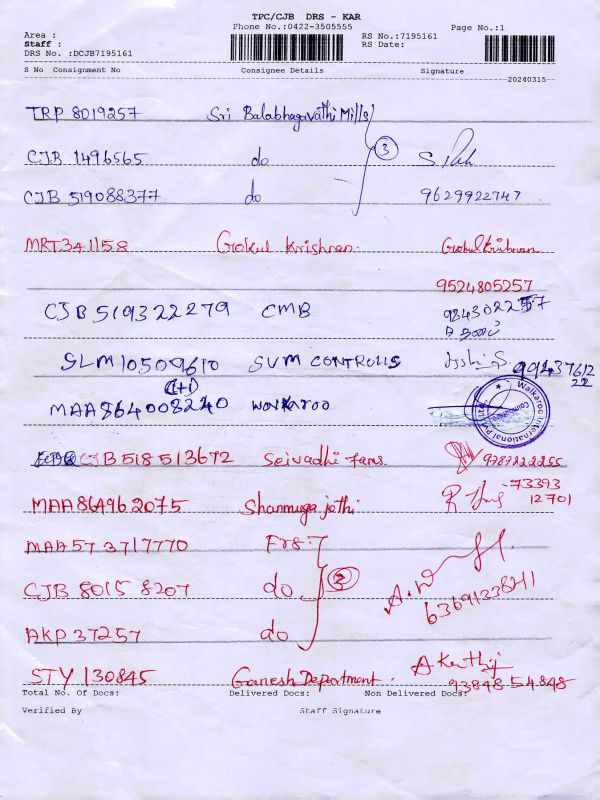 TPC/CJB DRS - KAR
Phone No.:0422-3505555
Page No.:1
Area :
Staff :
DRS No. :DCJB7195161
RS No.:7195161
RS Date:
S No Consignment No Consignee Details Signature
20240315
TRP 8019257 Sri Balabhagavathi Mills
CJB 1496565 do 3
CJB 519088377 do 9629922747
MRT341158 Gokul Krishnan. Gokul Krishnan
9524805257
CJB 519322279 CMB
SLM 10509610 SVM CONTROLLS
(1+1)
MAA 864008240 Walkaroo
Walkaroo International Pvt. Ltd.
Coimbatore
CJB 518513672 9787222255
MAA864962075 Shanmuga jothi 73393
12701
MAA573717770 Frs:7
CJB 80158207 do
AKP 37257 do
6369133841
STY 130845 Ganesh Department. 9384854848
Total No. Of Docs: Delivered Docs: Non Delivered Docs:
Verified By Staff Signature